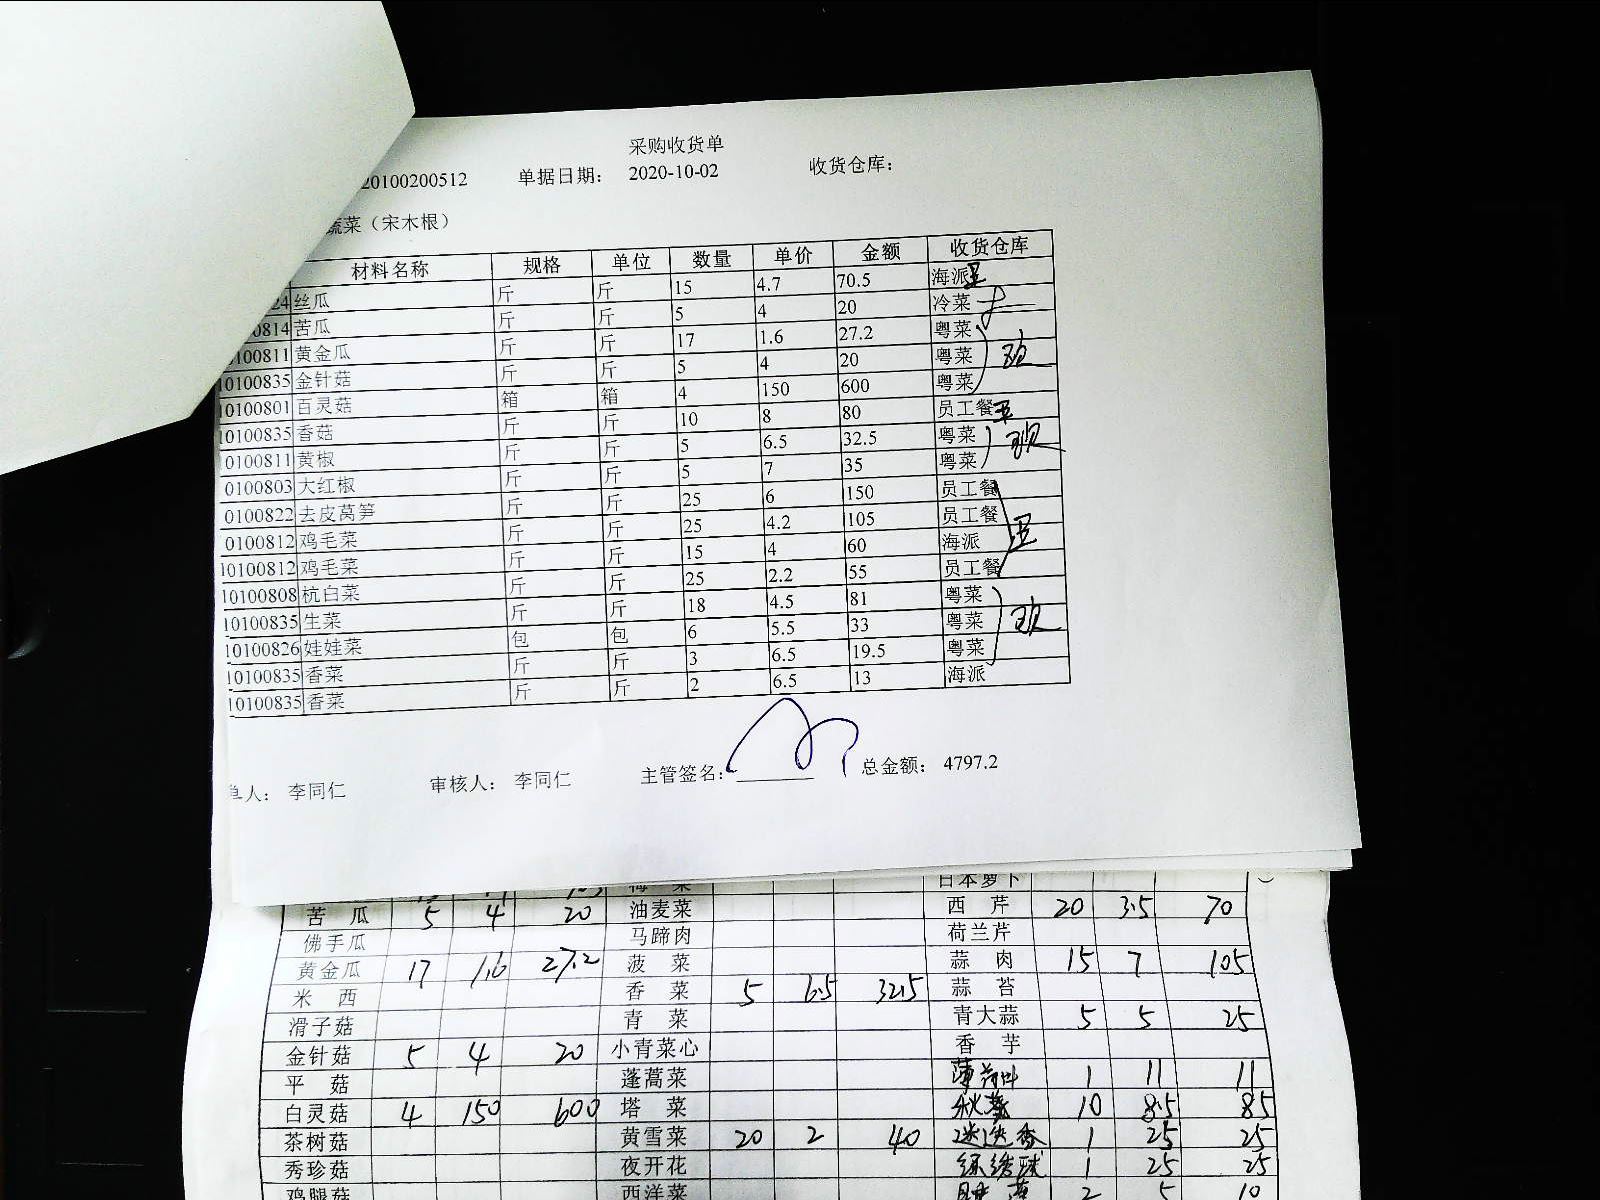 采购收货单
20100200512 单据日期： 2020-10-02 收货仓库：
蔬菜（宋木根）
材料名称 规格 单位 数量 单价 金额 收货仓库
24 丝瓜 斤 斤 15 4.7 70.5 海派
0814 苦瓜 斤 斤 5 4 20 冷菜
0100811 黄金瓜 斤 斤 17 1.6 27.2 粤菜
10100835 金针菇 斤 斤 5 4 20 粤菜
10100801 百灵菇 箱 箱 4 150 600 粤菜
10100835 香菇 斤 斤 10 8 80 员工餐
10100811 黄椒 斤 斤 5 6.5 32.5 粤菜
0100803 大红椒 斤 斤 5 7 35 粤菜
0100822 去皮莴笋 斤 斤 25 6 150 员工餐
0100812 鸡毛菜 斤 斤 25 4.2 105 员工餐
10100812 鸡毛菜 斤 斤 15 4 60 海派
10100808 杭白菜 斤 斤 25 2.2 55 员工餐
10100835 生菜 斤 斤 18 4.5 81 粤菜
10100826 娃娃菜 包 包 6 5.5 33 粤菜
10100835 香菜 斤 斤 3 6.5 19.5 粤菜
10100835 香菜 斤 斤 2 6.5 13 海派
单人： 李同仁 审核人： 李同仁 主管签名： 总金额： 4797.2
梅 菜 日本萝卜
苦 瓜 5 4 20 油麦菜 西 芹 20 3.5 70
佛手瓜 马蹄肉 荷兰芹
黄金瓜 17 1.6 27.2 菠 菜 蒜 肉 15 7 105
米 西 香 菜 5 6.5 32.5 蒜 苔
滑子菇 青 菜 青大蒜 5 5 25
金针菇 5 4 20 小青菜心 香 芋
平 菇 蓬蒿菜 薄荷叶 1 11 11
白灵菇 4 150 600 塔 菜 秋葵 10 8.5 85
茶树菇 黄雪菜 20 2 40 迷迭香 1 25 25
秀珍菇 夜开花 1 25 25
鸡腿菇 西洋菜 2 5 10